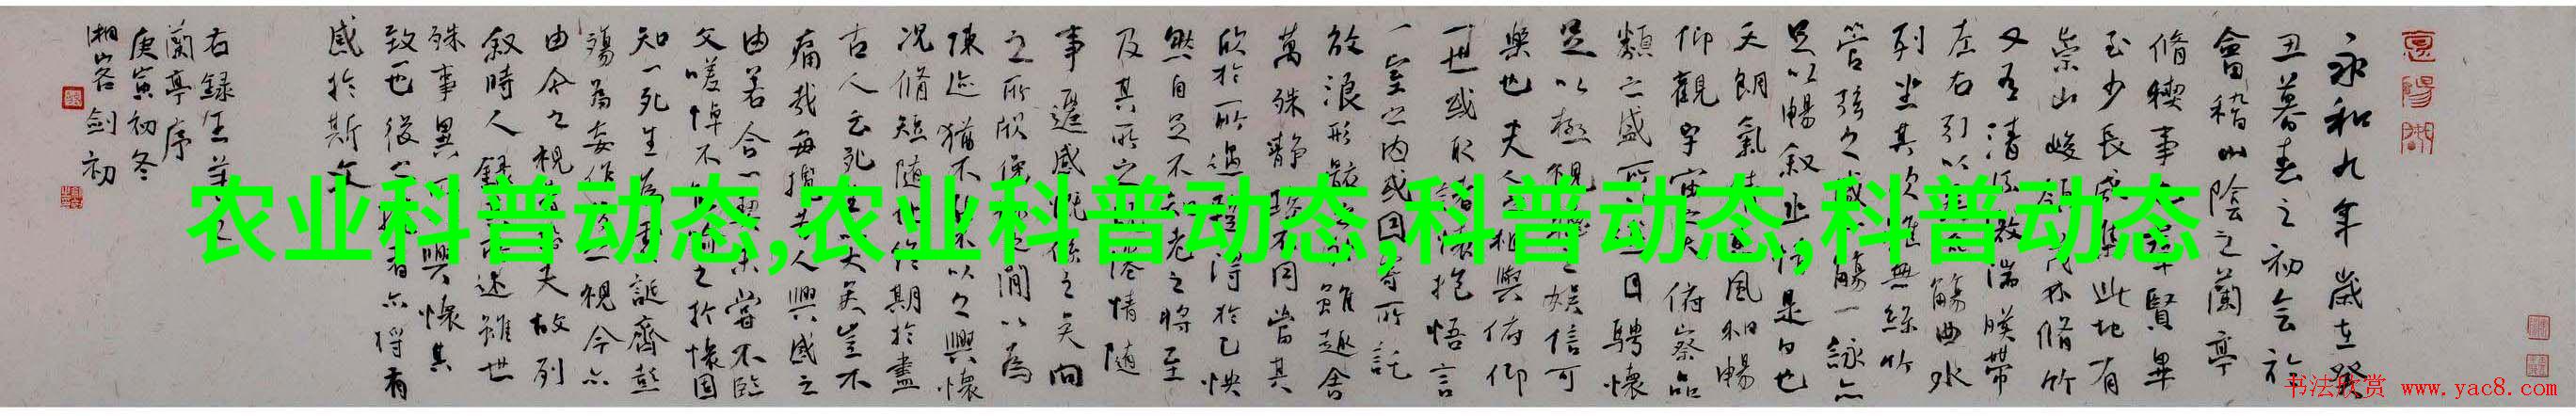 永和九年歲在癸
丑暮春之初会於
會稽山陰之蘭亭
脩禊事也羣賢畢
至少長咸集此地有
崇山峻領茂林脩竹
又有清流激湍暎帶
左右引以為流觴曲水
列坐其次雖無絲竹
管弦之盛一觴一詠亦
足以暢叙幽情是日也
天朗氣清惠風和暢
仰觀宇宙之大俯察品
類之盛所以遊目騁懷
足以極視聽之娛信可
樂也夫人之相與俯仰
一世或取諸懷抱悟言
一室之内或因寄所託
放浪形骸之外雖趣舍
萬殊靜躁不同當其
欣於所遇暫得於己怏
然自足不知老之將至
及其所之既惓情隨
事遷感慨係之矣向
之所欣俛仰之間以為
陳迹猶不能不以之興懷
况脩短隨化終期於盡
古人云死生亦大矣豈不
痛哉每攬昔人興感之
由若合一契未嘗不臨
文嗟悼不能喻之於懷固
知一死生為虛誕齊彭
殤為妄作後之視今亦
由今之視昔悲夫故列
叙時人録其所述雖世
殊事異所以興懷其
致也後之攬者亦將有
感於斯文
右録王羲之
蘭亭序
庚寅初冬
湘客剑初
农业科普动态,农业科普动态,科普动态,科普动态
书法欣赏 www.yac8.com